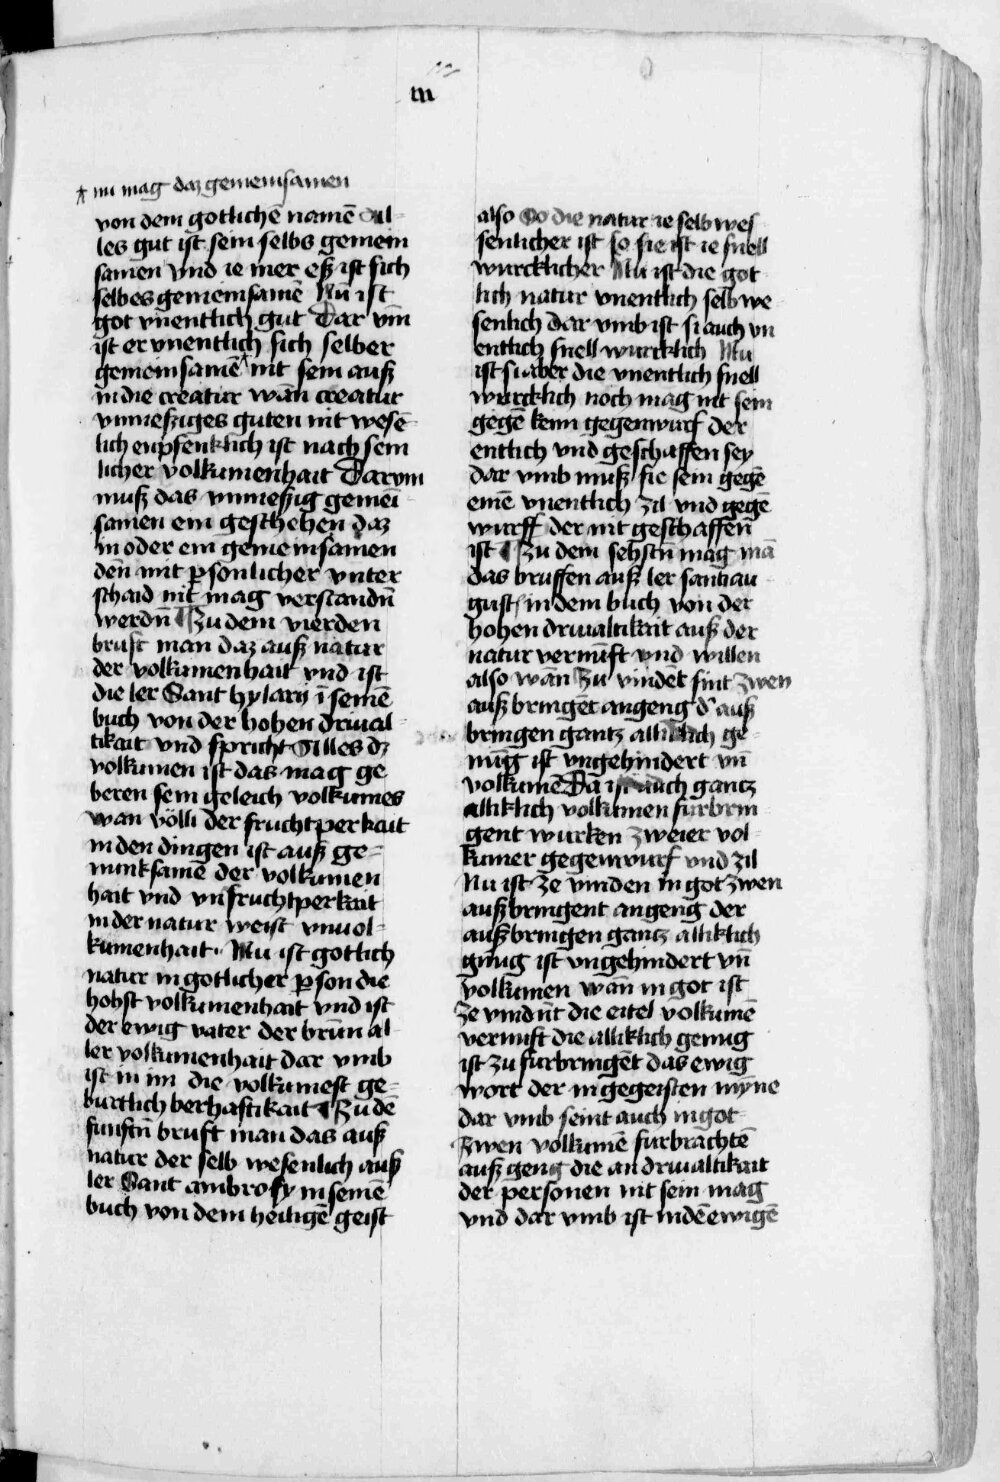 III
nu mag daz gemeinsamen
von dem gotlichē namē Al-
les gut ist sein selbs gemein
samen vnd ie mer eß ist sich
selbes gemeinsamē Nū ist
got vnentlich gut Dar vm̄
ist er vnentlich sich selber
gemeinsamē nit sein auß
in die creatur wān creatur
vnmeßziges guten nit wesē-
lich enpfenklich ist nach sein
licher volkumenhait Darvm
muß das vnmeßzig gemei-
samen ein geschehen daz
in oder ein gemeinsamen
den̄ mit ꝑsonlicher vnter
schaid nit mag verstandn̄
werdn̄ ¶ Zu dem vierden
bruft man daz auß natur
der volkumenhait vnd ist
die ler Sant hylarij ī seinē
buch von der hohen driual-
tikait vnd spricht Alles dz
volkumen ist das mag ge
beren sein geleich volkumes
wan völli der fruchtperkait
in den dingen ist auß ge-
nunksamē der volkumen
hait vnd vnfruchtperkait
in der natur weist vnuol-
kumenhait. Nu ist gotlich
natur in gotlicher ꝑson die
hohst volkumenhait vnd ist
der ewig vater der brūn al-
ler volkumenhait dar vmb
ist in im die volkumest ge-
burtlich berhaftikait ¶ Zu dē
funftn̄ bruft man das auß
natur der selb wesenlich auß
ler Sant ambrosy in seinē
buch von dem heiligē geist
also So die natur ie selb wes
senlicher ist so sie ist ie snell
wurcklicher Nu ist die got
lich natur vnentlich selb we
senlich dar vmb ist si auch vn
entlich snell wurcklich Nu
ist si aber die vnentlich snell
wurcklich noch mag nit sein
gegē kein gegenwurf der
entlich vnd geschaffen sey
dar vmb muß sie sein gegē
einē vnentlich zil vnd gegē
wurff der nit geschaffen̄
ist ¶ Zu dem sehstn̄ mag mā
das bruffen auß ler santi au
gusti in dem buch von der
hohen driualtikait auß der
natur vernūft vnd willen
also wān zu vindet sint zwen
auß bringet angeng d' auß
bringen gantz alliklich ge-
nūg ist vngehindert vn̄
volkumē Da ist auch gantz
alliklich volkumen furbrin
gent wurken zweier vol-
kumer gegenwurf vnd zil
Nu ist ze vinden in got zwen
außbringent angeng der
außbringen gantz alliklich
gnug ist vngehindert vn̄
volkumen wān in got ist
ze vindn̄t die eitel volkumē
vernuft die alliklich genug
ist zu furbringēt das ewig
wort der in gegeisten myne
dar vmb seint auch in got
zwen volkumē furbrachtē
auß geng die an driualtikait
der personen nit sein mag
vnd dar vmb ist in dē ewigē